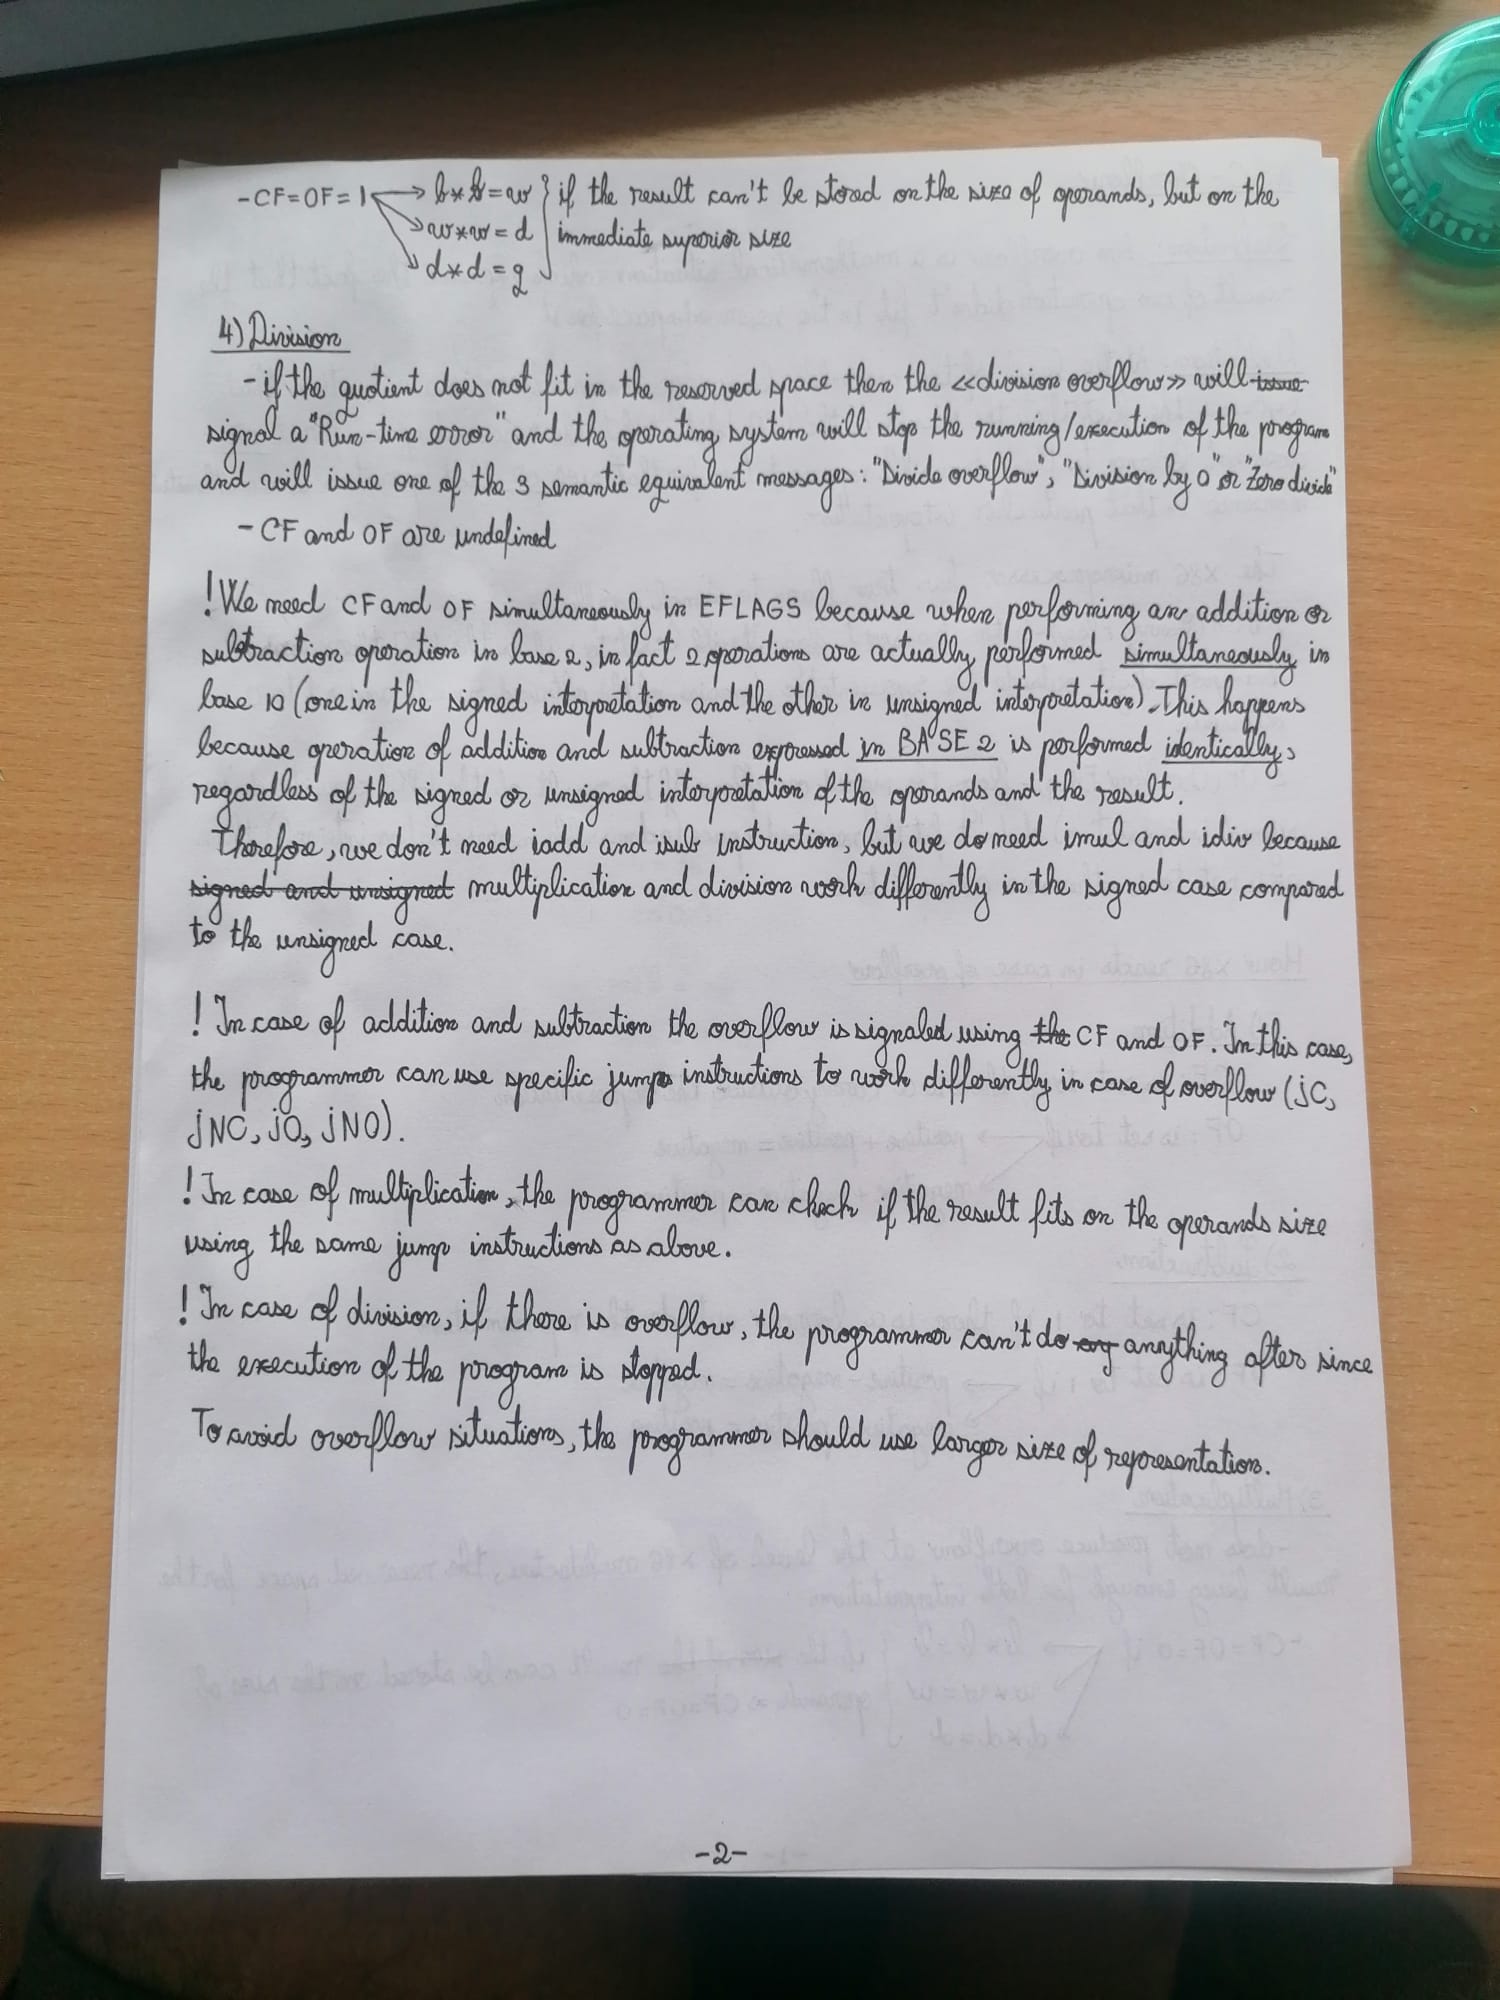 -CF=OF=1 → b*b=w } if the result can't be stored on the size of operands, but on the
→ w*w=d } immediate superior size
→ d*d=q
4) Division
- if the quotient does not fit in the reserved space then the <<division overflow>> will issue
signal a "Run-time error" and the operating system will stop the running/execution of the program
and will issue one of the 3 semantic equivalent messages: "Divide overflow", "Division by 0" or "Zero divide"
- CF and OF are undefined
! We need CF and OF simultaneously in EFLAGS because when performing an addition or
subtraction operation in base 2, in fact 2 operations are actually performed simultaneously in
base 10 (one in the signed interpretation and the other in unsigned interpretation). This happens
because operation of addition and subtraction expressed in BASE 2 is performed identically,
regardless of the signed or unsigned interpretation of the operands and the result.
Therefore, we don't need iadd and isub instruction, but we do need imul and idiv because
signed and unsigned multiplication and division work differently in the signed case compared
to the unsigned case.
! In case of addition and subtraction the overflow is signaled using the CF and OF. In this case,
the programmer can use specific jump instructions to work differently in case of overflow (jC,
jNC, jO, jNO).
! In case of multiplication, the programmer can check if the result fits on the operands size
using the same jump instructions as above.
! In case of division, if there is overflow, the programmer can't do any anything after since
the execution of the program is stopped.
To avoid overflow situations, the programmer should use larger size of representation.
-2-